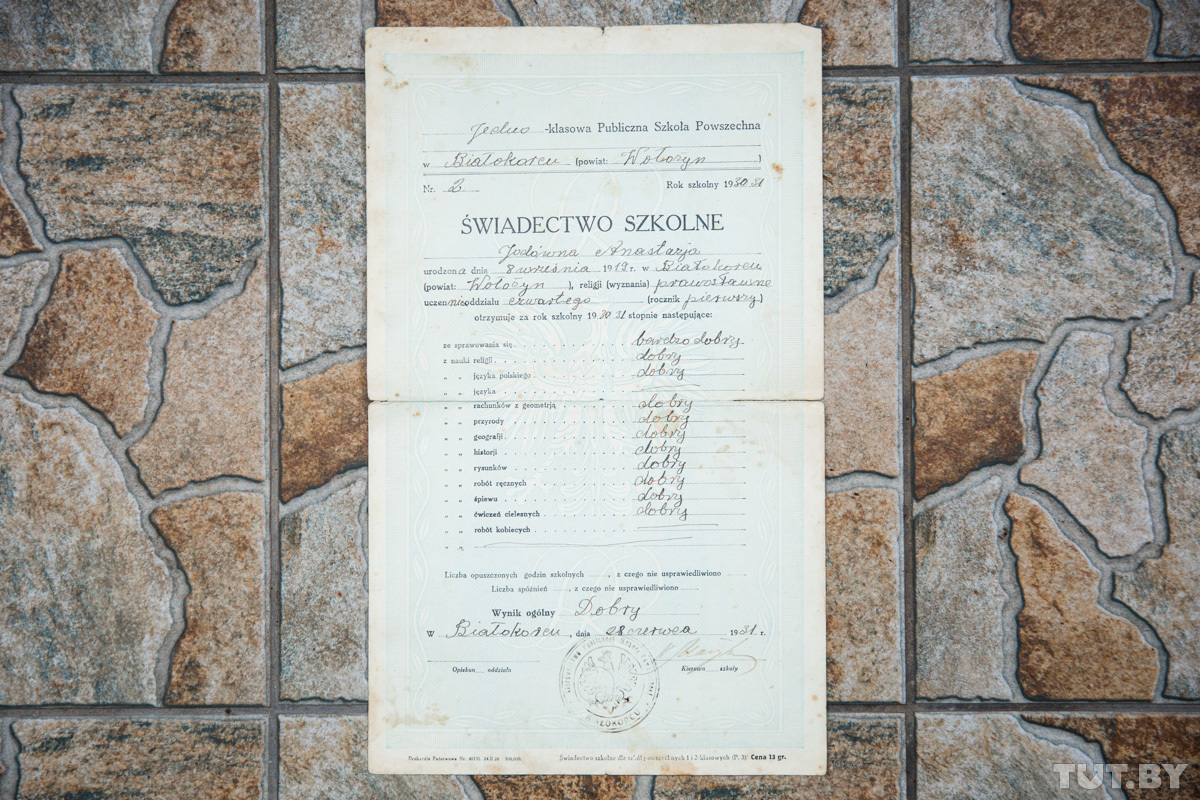 Jedno -klasowa Publiczna Szkoła Powszechna
w Białokorcu (powiat: Wołożyn )
Nr. 2 Rok szkolny 1930 31
ŚWIADECTWO SZKOLNE
Jodówna Anastazja
urodzona dnia 8 września 1919 r. w Białokorcu
(powiat: Wołożyn ), religji (wyznania) prawosławne
uczennica oddziału czwartego (rocznik pierwszy)
otrzymuje za rok szkolny 1930 31 stopnie następujące:
ze sprawowania się bardzo dobry
z nauki religji dobry
„ „ języka polskiego dobry
„ „ języka
„ „ rachunków z geometrją dobry
„ „ przyrody dobry
„ „ geografji dobry
„ „ historji dobry
„ „ rysunków dobry
„ „ robót ręcznych dobry
„ „ śpiewu dobry
„ „ ćwiczeń cielesnych dobry
„ „ robót kobiecych
„ „
Liczba opuszczonych godzin szkolnych , z czego nie usprawiedliwiono
Liczba spóźnień , z czego nie usprawiedliwiono
Wynik ogólny Dobry
W Białokorcu, dnia 28 czerwca 1931 r.
Opiekun oddziału Kierown szkoły
BIAŁOKORCU
Drukarnia Państwowa Nr.
Świadectwo szkolne dla szkół powszechnych 1 i 2-klasowych (P. 3) Cena 13 gr.
TUT.BY